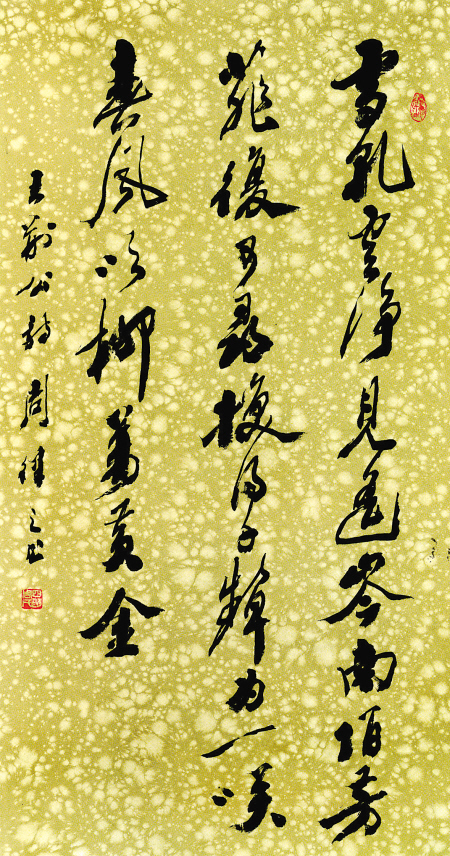 雪乾雲淨見遙岑南陌芳
菲復可尋換得千顰為一咲
春風吹柳萬黃金
王荊公詩 周